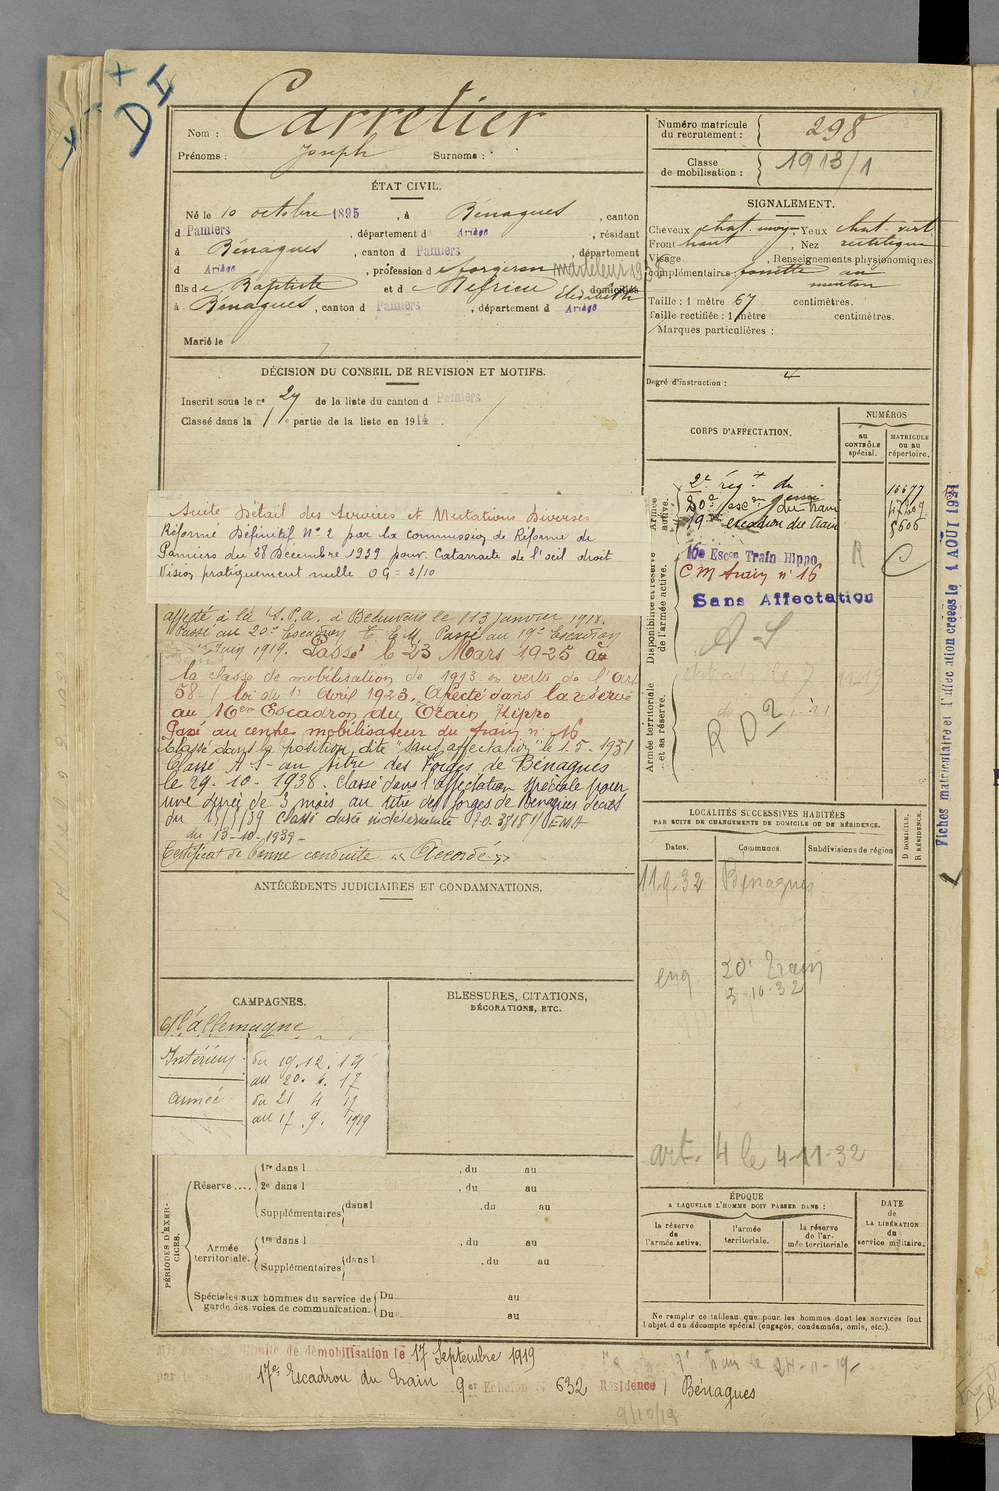 D I
Nom : Carretier
Prénoms : Joseph Surnoms :
ÉTAT CIVIL.
Né le 10 octobre 1895, à Bénagues, canton
d Pamiers, département d Ariège, résidant
à Bénagues, canton d Pamiers, département
d Ariège, profession de forgeron
fils de Baptiste et de Elisabeth domiciliés
à Bénagues, canton d Pamiers, département d Ariège
Marié le
DÉCISION DU CONSEIL DE REVISION ET MOTIFS.
Inscrit sous le no 27 de la liste du canton d Pamiers
Classé dans la 1re partie de la liste en 1914.
Suite Détail des Services et Mutations Diverses
Réformé Définitif No 2 par la commission de Réforme de
Pamiers du 28 Décembre 1939 pour Catarracte de l'oeil droit
Vision pratiquement nulle OG = 2/10
affecté à la S.P.A. à Beauvais le 13 janvier 1918.
Passé au 20e Escadron T. E. M. Passé au 19e Escadron
Juin 1919. Passé le 23 Mars 1925 à
la classe de mobilisation de 1913 en vertu de l'Art
58-1 loi du 1er Avril 1923. Affecté dans la réserve
au 16em Escadron du Train Hippo
Passé au centre mobilisateur du train no 16
Classé dans la position dite "sans affectation" le 1.5-1931
Classé A.S- au titre des Forges de Bénagues
le 29-10-1938. Classé dans l'affectation spéciale pour
une durée de 3 mois au titre des forges de Bénagues
du 15/5/39 classé durée indéterminée
du 13-10-1939-
Certificat de bonne conduite "Accordé"
ANTÉCÉDENTS JUDICIAIRES ET CONDAMNATIONS.
CAMPAGNES.
Ct l'allemagne
Intérieur : du 19.12.14
au 20.4.17
armée du 21 4 17
au 17.9.1919
BLESSURES, CITATIONS,
DÉCORATIONS, ETC.
PÉRIODES D'EXERCICES.
Réserve.... 1re dans l , du au
2e dans l , du au
Supplémentaires dans l , du au
Armée territoriale. 1re dans l , du au
Supplémentaires dans l , du au
Spéciales aux hommes du service de garde des voies de communication. Du au
Du au
Numéro matricule du recrutement : 298
Classe de mobilisation : 1913/1
SIGNALEMENT.
Cheveux chat. moyen, Yeux chat. vert
Front haut, Nez rectiligne
Visage , Renseignements physionomiques
complémentaires fossette au
menton
Taille : 1 mètre 67 centimètres.
Taille rectifiée : 1 mètre centimètres.
Marques particulières :
Degré d'instruction : 4
CORPS D'AFFECTATION.
NUMÉROS
au CONTRÔLE spécial.
MATRICULE ou au répertoire.
Armée active.
2e régt du génie
20e escon du train
19e escadron du train 5606
Disponibilité et réserve de l'armée active.
16e Escon Train Hippo
C M train no 16
Sans Affectation
R C
A S
Armée territoriale et sa réserve.
R D 2
LOCALITÉS SUCCESSIVES HABITÉES
PAR SUITE DE CHANGEMENTS DE DOMICILE OU DE RÉSIDENCE.
Dates. Communes. Subdivisions de région
D DOMICILE. R RÉSIDENCE.
11.9.32 Bénagues
20e Train
5-10-32
art. 4 le 4-11-32
ÉPOQUE
A LAQUELLE L'HOMME DOIT PASSER DANS :
la réserve de l'armée active.
l'armée territoriale.
la réserve de l'armée territoriale.
DATE de LA LIBÉRATION du service militaire.
Ne remplir ce tableau que pour les hommes dont les services font
l'objet d'un décompte spécial (engagés, condamnés, omis, etc.).
Fiches matricule et d'affectation créées le 1 AOUT 1921
illimité de démobilisation le 17 Septembre 1919
17e Escadron du train 9er Echelon 632 Résidence Bénagues
9/10/19